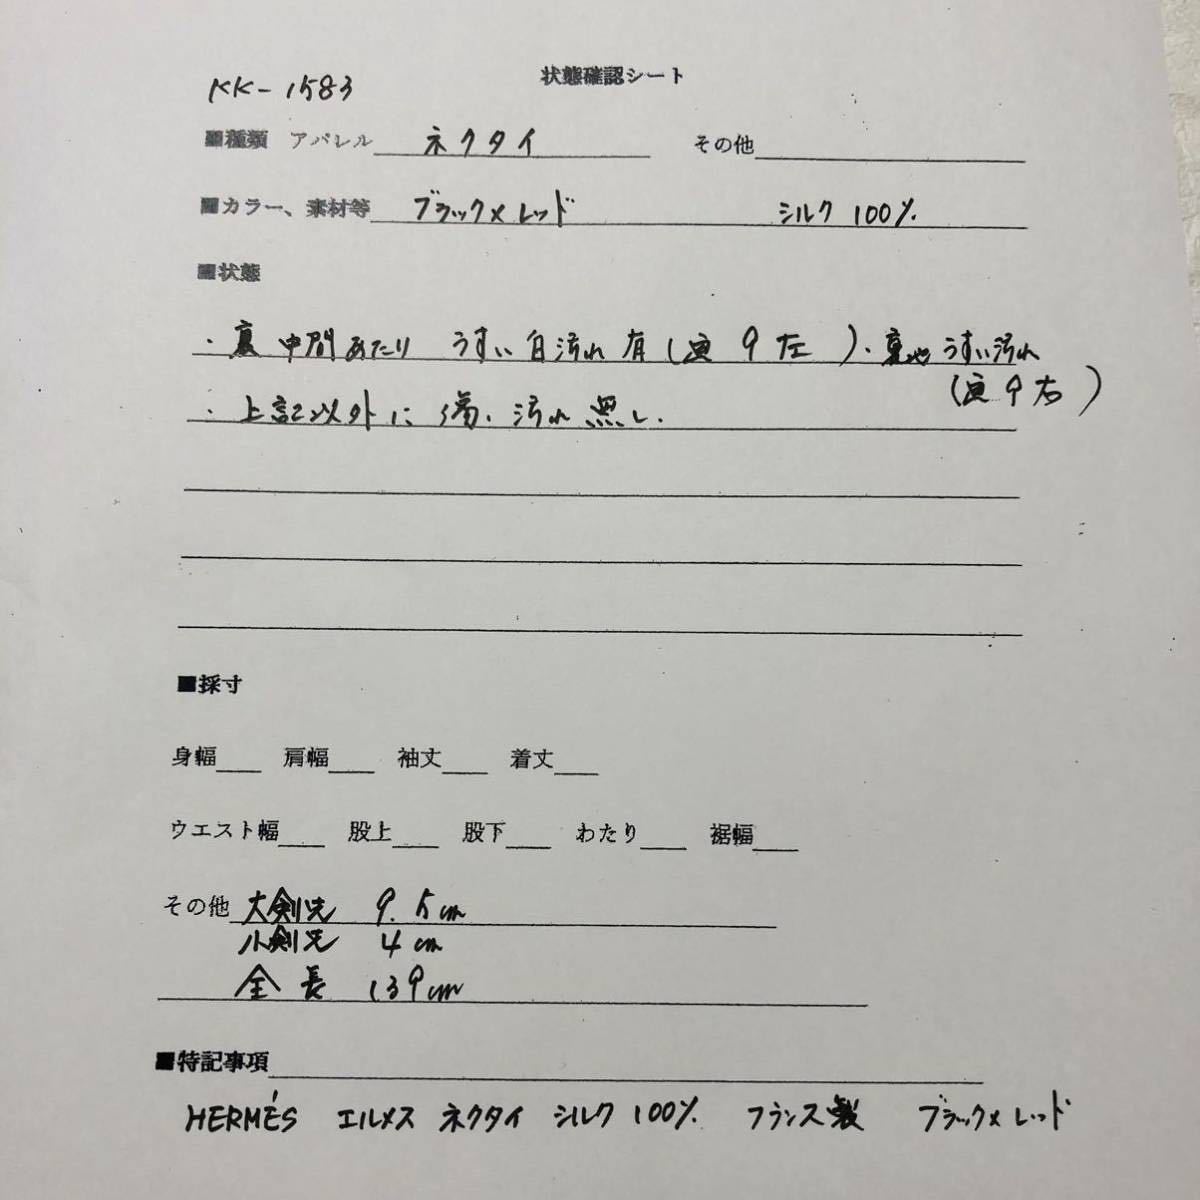 状態確認シート
KK-1583
■種類 アパレル ネクタイ その他
■カラー、素材等 ブラック×レッド シルク 100%
■状態
・裏 中間あたり うすい白汚れ有(画9左)・裏地うすい汚れ
(画9右)
・上記以外に傷、汚れ無し.
■採寸
身幅 肩幅 袖丈 着丈
ウエスト幅 股上 股下 わたり 裾幅
その他 大剣先 9.5cm
小剣先 4cm
全長 139cm
■特記事項
HERMÈS エルメス ネクタイ シルク 100% フランス製 ブラック×レッド